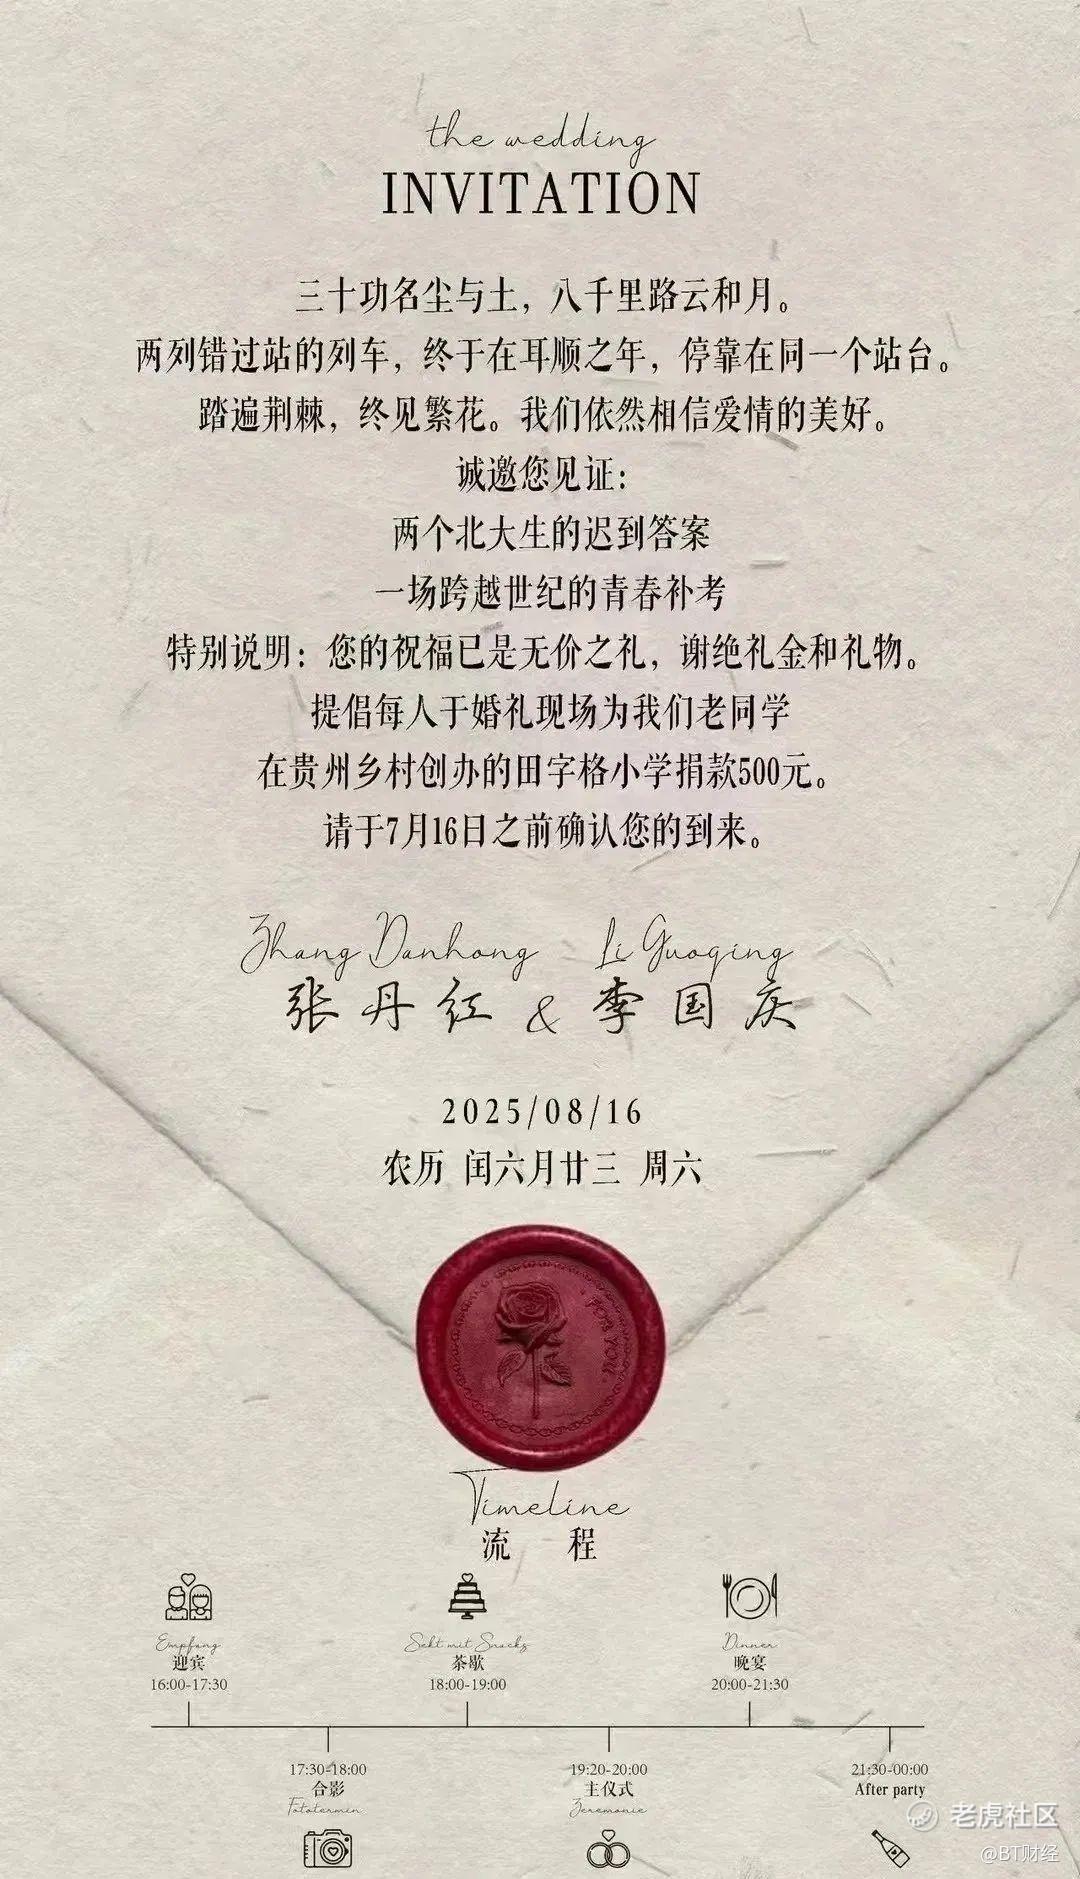 the wedding
INVITATION
三十功名尘与土，八千里路云和月。
两列错过站的列车，终于在耳顺之年，停靠在同一个站台。
踏遍荆棘，终见繁花。我们依然相信爱情的美好。
诚邀您见证：
两个北大生的迟到答案
一场跨越世纪的青春补考
特别说明：您的祝福已是无价之礼，谢绝礼金和礼物。
提倡每人于婚礼现场为我们老同学
在贵州乡村创办的田字格小学捐款500元。
请于7月16日之前确认您的到来。
Zhang Danhong Li Guoqing
张丹红 & 李国庆
2025/08/16
农历 闰六月廿三 周六
FOR YOU
Timeline
流 程
Empfang
迎宾
16:00-17:30
17:30-18:00
合影
Fototermin
Sekt mit Snacks
茶歇
18:00-19:00
19:20-20:00
主仪式
Zeremonie
Dinner
晚宴
20:00-21:30
21:30-00:00
After party
老虎社区
@BT财经